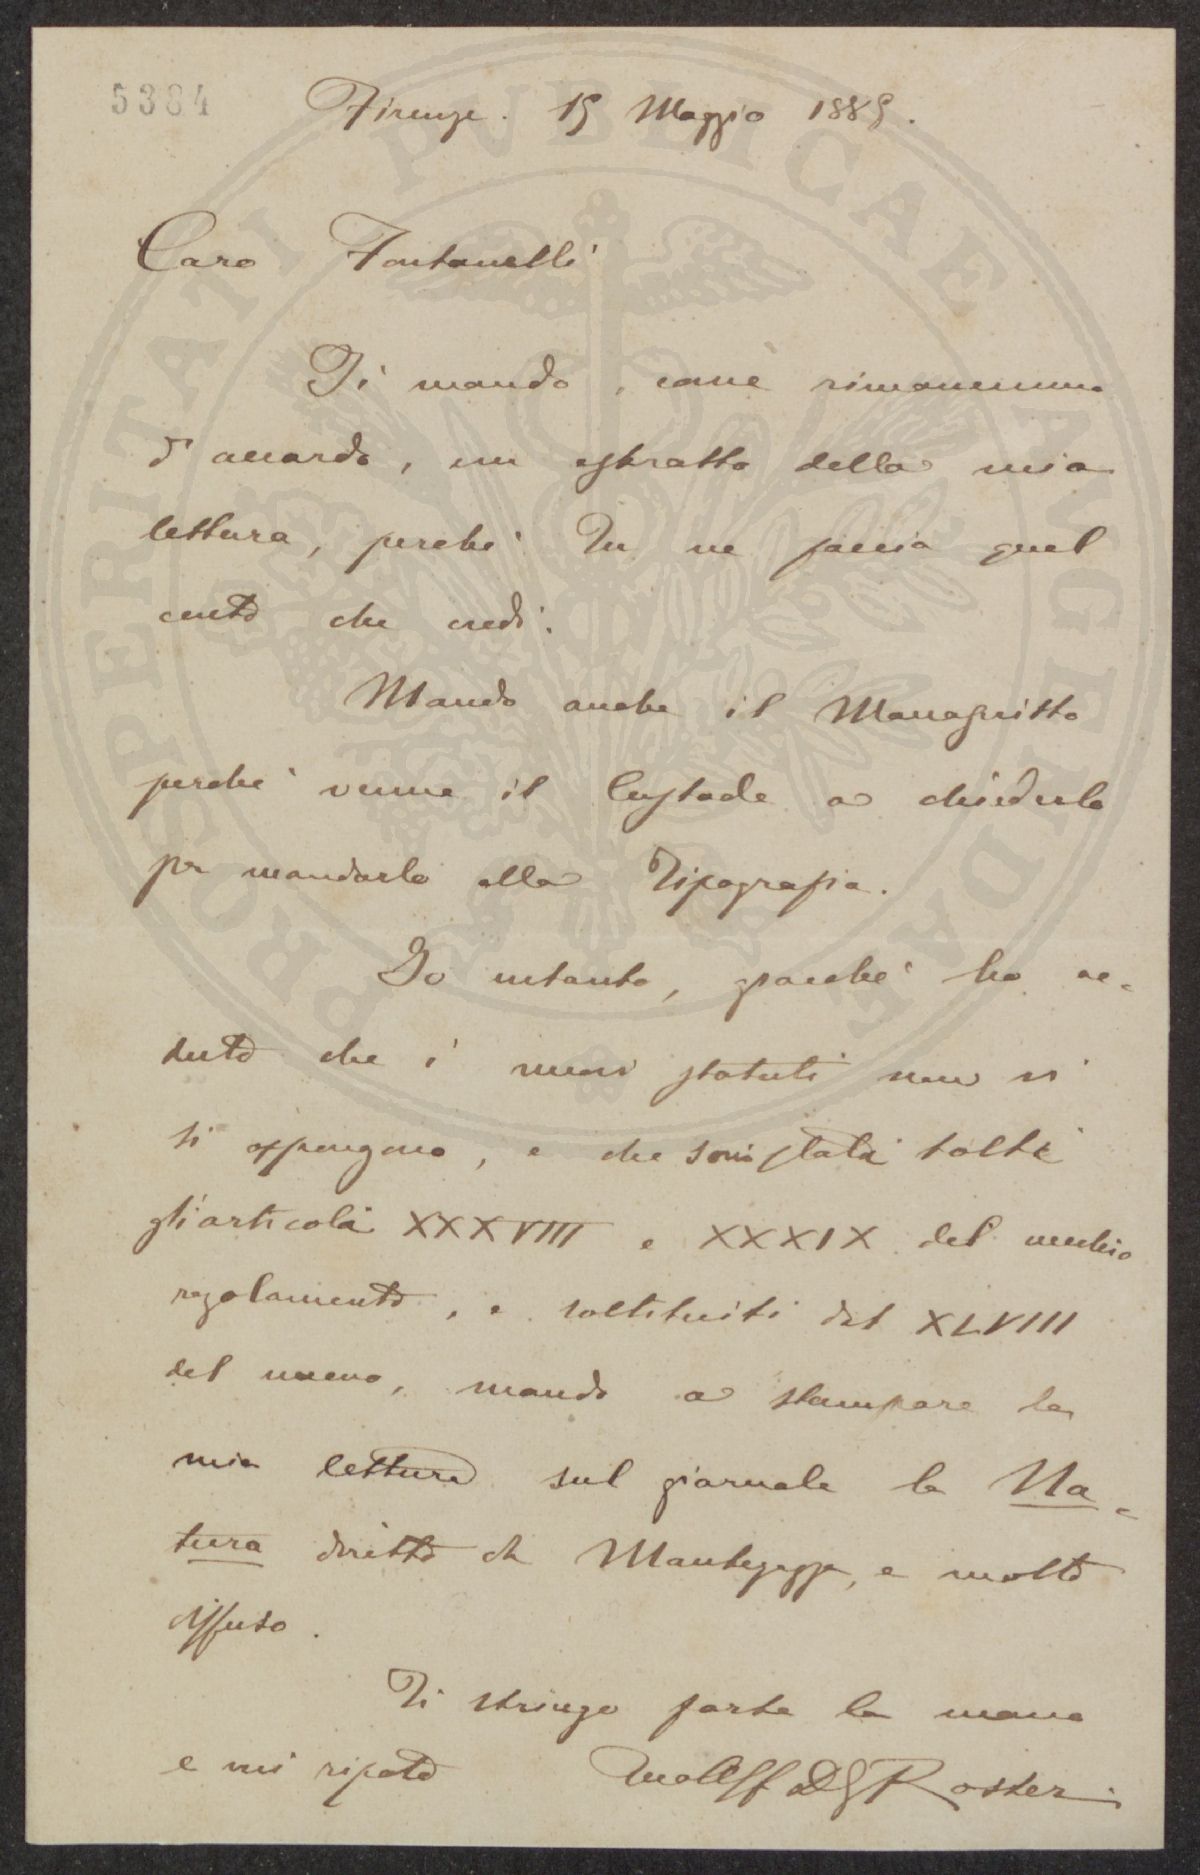 5384
Firenze. 15 Maggio 1885.
Caro Fontanelli
Ti mando, com'è rimanemmo
d'accordo, un estratto della mia
lettura, perchè Tu ne faccia quel
conto che credi.
Mando anche il Manoscritto
perchè venne il Custode a chiederlo
per mandarlo alla Tipografia.
Io intanto, giacchè ho ve-
duto che i nuovi statuti non vi
si oppongono, e che sono stati tolti
gli articoli XXXVIII e XXXIX del vecchio
regolamento, e sostituiti dal XLVIII
del nuovo, mando a stampare la
mia lettura sul giornale la Na-
tura diretto da Mantegazza, e molto
diffuso.
Ti stringo forte la mano
e mi ripeto Tuo Aff DG Roster
PROSPERITATI PVBLICAE AVGENDAE